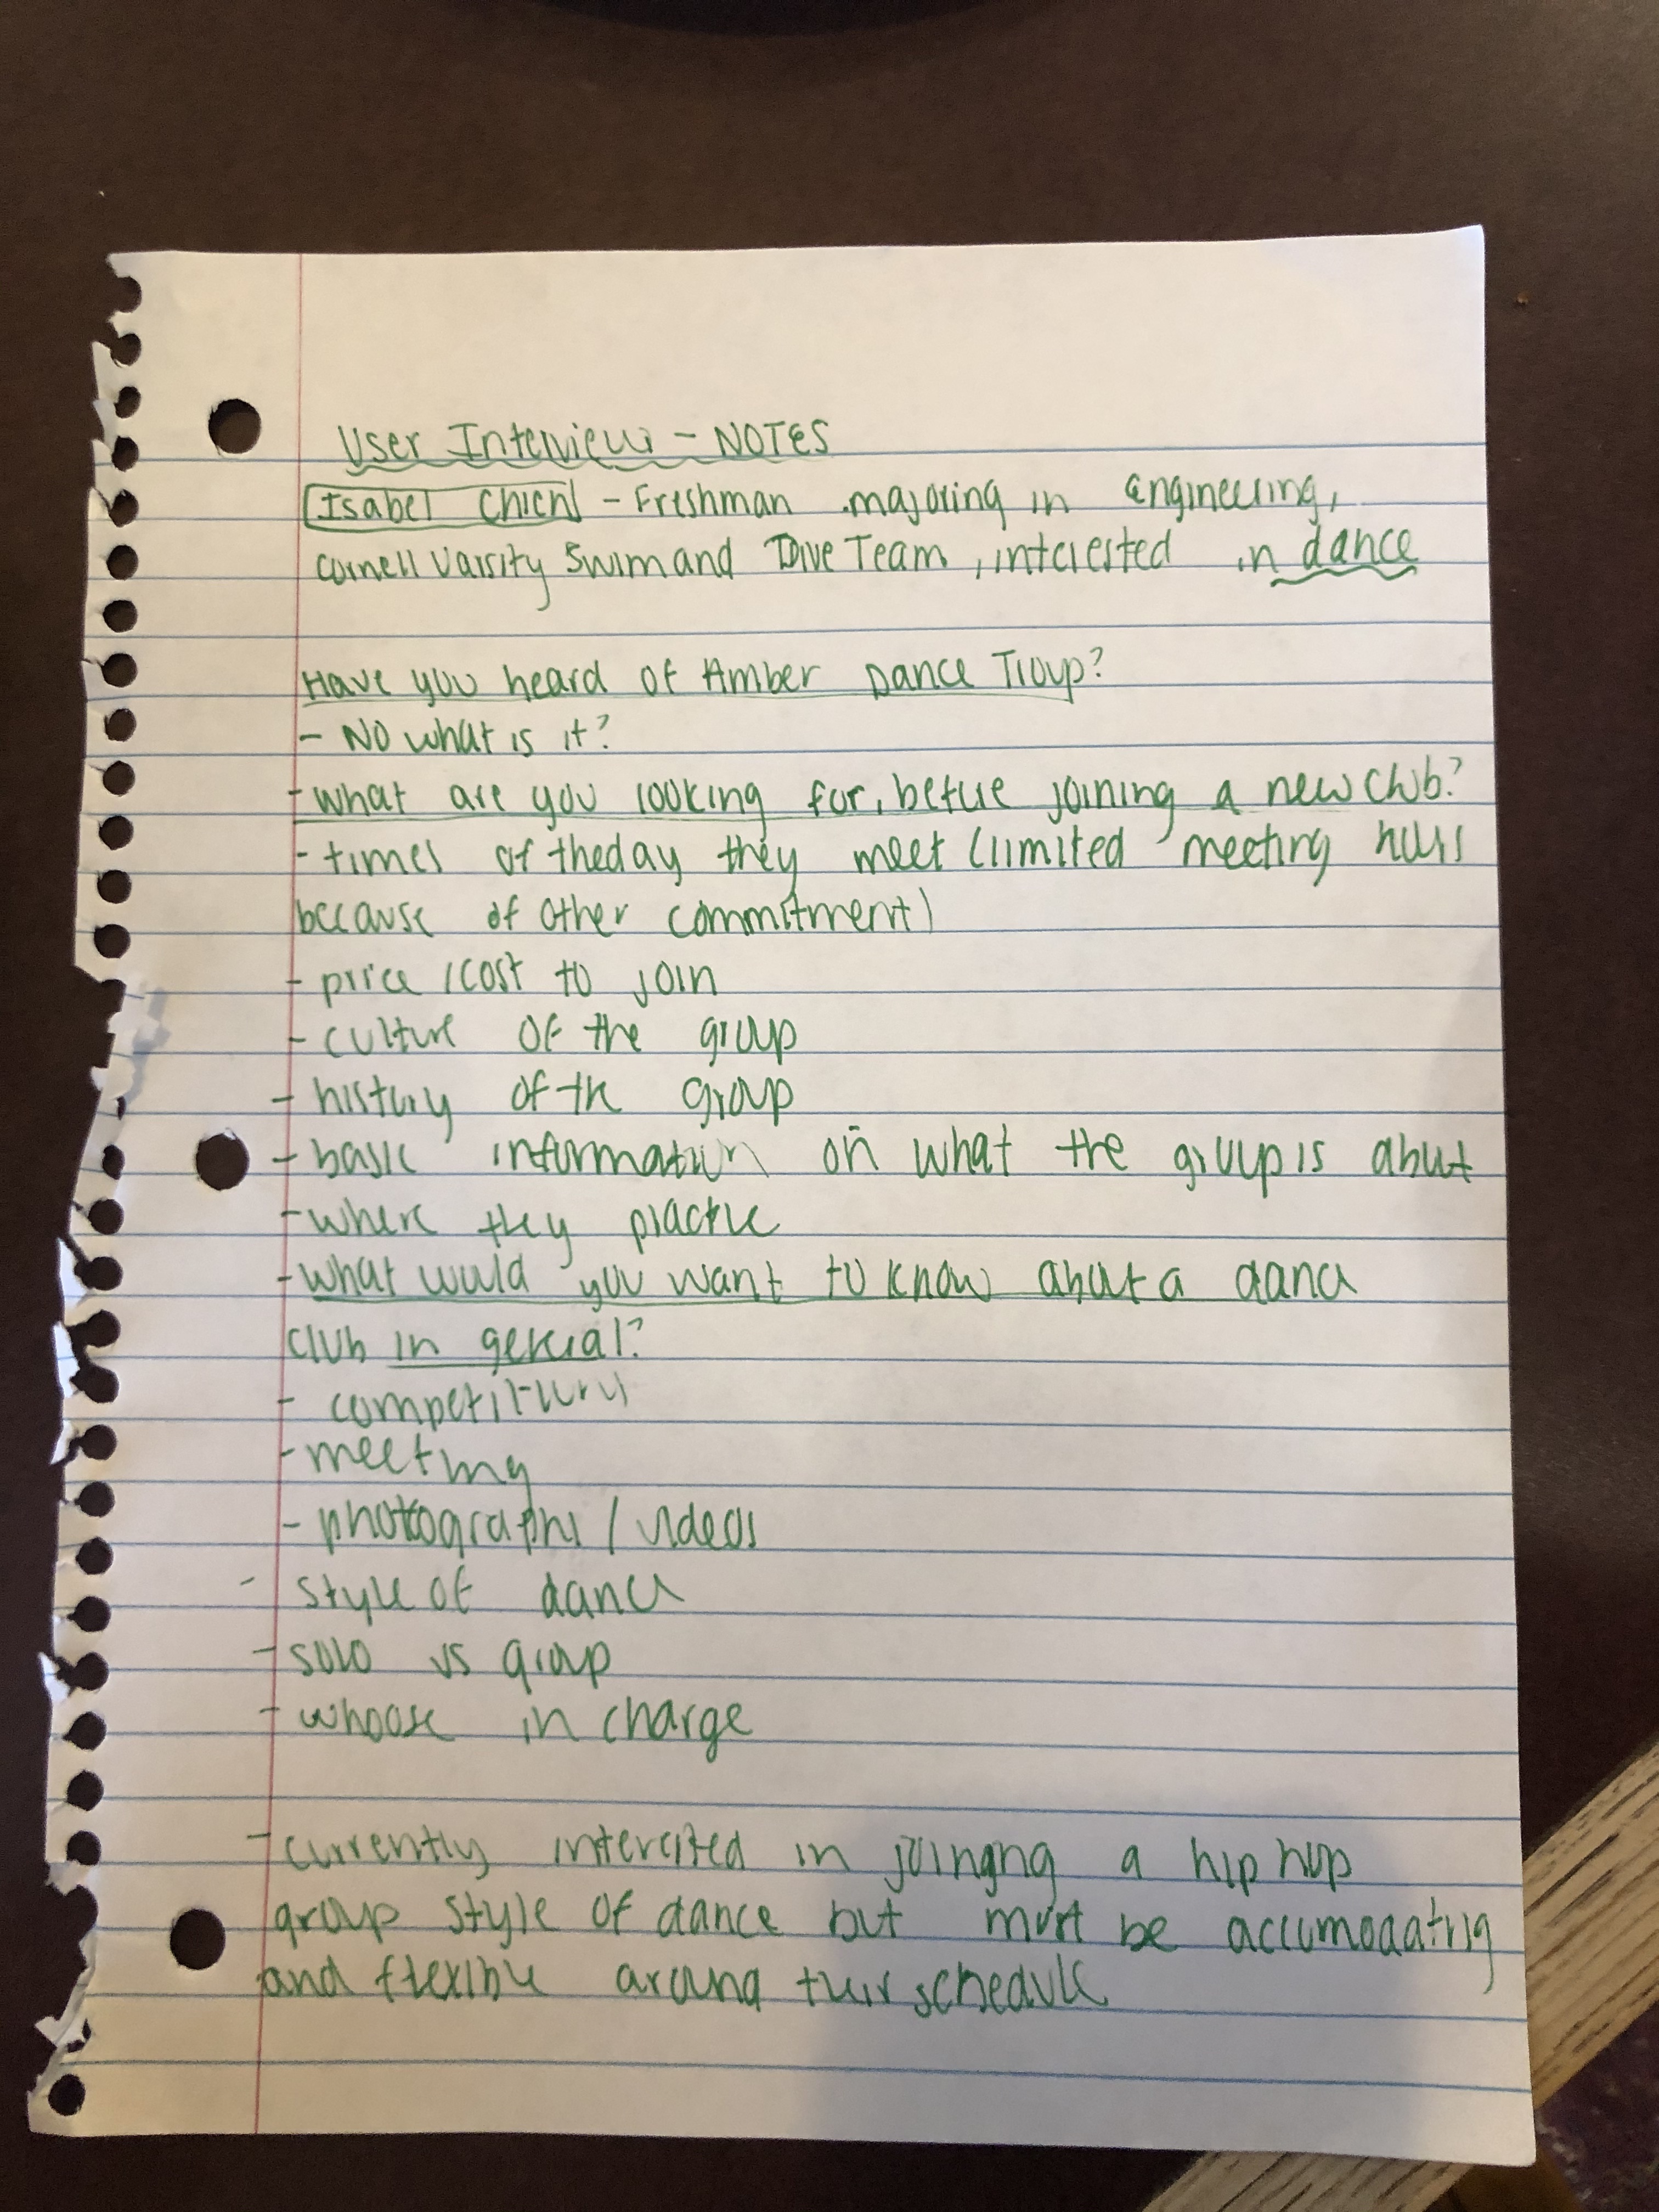 User Interview - NOTES
Isabel Chien - Freshman majoring in engineering,
cornell Varsity Swim and Dive Team, interested in dance
Have you heard of Amber Dance Troup?
- No what is it?
- what are you looking for, before joining a new club?
- times of the day they meet (limited meeting hours
because of other commitment)
- price / cost to join
- culture of the group
- history of the group
- basic information on what the group is about
- where they practice
- what would you want to know about a dance
club in general?
- competitions
- meeting
- photographs / videos
- style of dance
- solo vs group
- whoose in charge
- currently interested in joingng a hip hop
group style of dance but must be accumodating
and flexible around their schedule